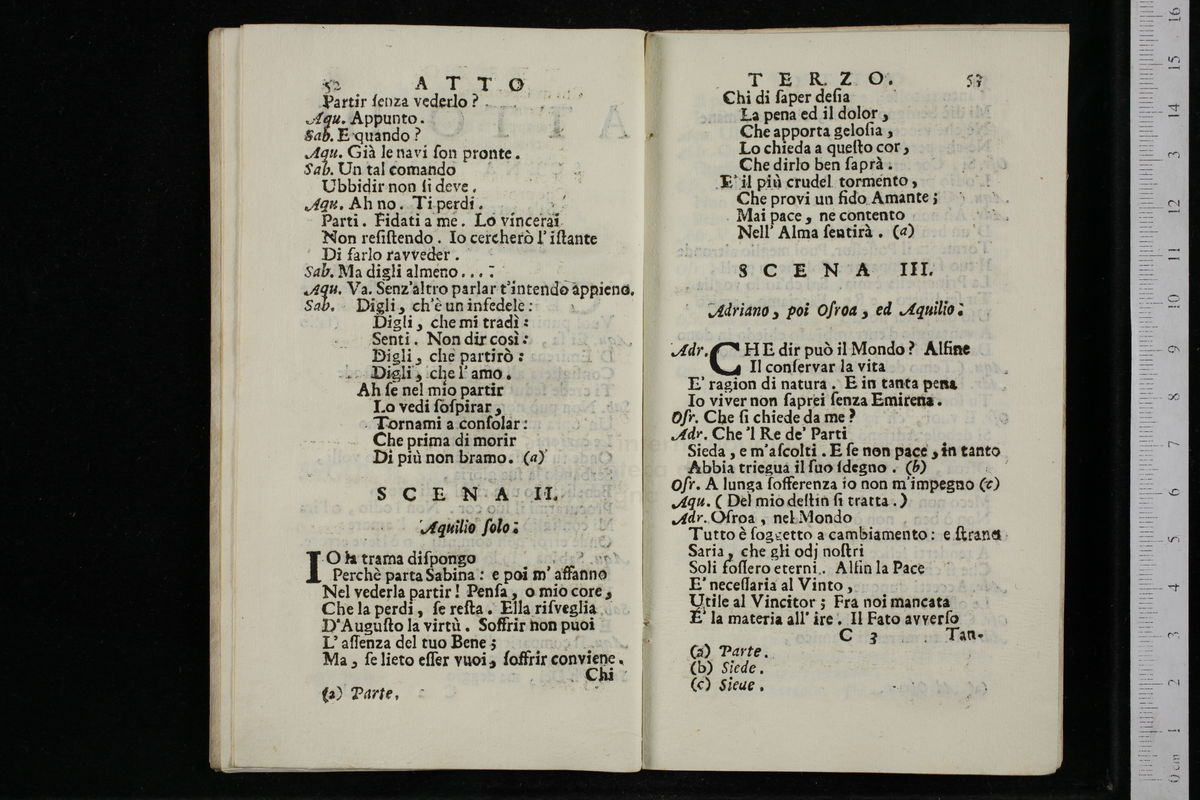 52 ATTO
Partir ſenza vederlo?
Aqu. Appunto.
Sab. E quando?
Aqu. Già le navi ſon pronte.
Sab. Un tal comando
Ubbidir non ſi deve.
Aqu. Ah no. Ti perdi.
Parti. Fidati a me. Lo vincerai
Non reſiſtendo. Io cercherò l'iſtante
Di farlo ravveder.
Sab. Ma digli almeno....
Aqu. Va. Senz'altro parlar t'intendo appieno.
Sab. Digli, ch'è un infedele:
Digli, che mi tradì:
Senti. Non dir così:
Digli, che partirò:
Digli, che l'amo.
Ah ſe nel mio partir
Lo vedi ſoſpirar,
Tornami a conſolar:
Che prima di morir
Di più non bramo. (a)
SCENA II.
Aquilio ſolo.
IO la trama diſpongo
Perchè parta Sabina: e poi m'affanno
Nel vederla partir! Penſa, o mio core,
Che la perdi, ſe reſta. Ella riſveglia
D'Auguſto la virtù. Soffrir non puoi
L'aſſenza del tuo Bene;
Ma, ſe lieto eſſer vuoi, ſoffrir conviene.
Chi
(a) Parte.
TERZO. 53
Chi di ſaper deſia
La pena ed il dolor,
Che apporta geloſia,
Lo chieda a queſto cor,
Che dirlo ben ſaprà.
E' il più crudel tormento,
Che provi un fido Amante;
Mai pace, ne contento
Nell' Alma ſentirà. (a)
SCENA III.
Adriano, poi Oſroa, ed Aquilio.
Adr. CHE dir può il Mondo? Alfine
Il conſervar la vita
E' ragion di natura. E in tanta pena
Io viver non ſaprei ſenza Emirena.
Oſr. Che ſi chiede da me?
Adr. Che 'l Re de' Parti
Sieda, e m'aſcolti. E ſe non pace, in tanto
Abbia triegua il ſuo ſdegno. (b)
Oſr. A lunga ſofferenza io non m'impegno (c)
Aqu. (Del mio deſtin ſi tratta.)
Adr. Oſroa, nel Mondo
Tutto è ſoggetto a cambiamento: e ſtrano
Saria, che gli odj noſtri
Soli foſſero eterni. Alfin la Pace
E' neceſſaria al Vinto,
Utile al Vincitor; Fra noi mancata
E' la materia all' ire. Il Fato avverſo
C 3 Tan-
(a) Parte.
(b) Siede.
(c) Siede.